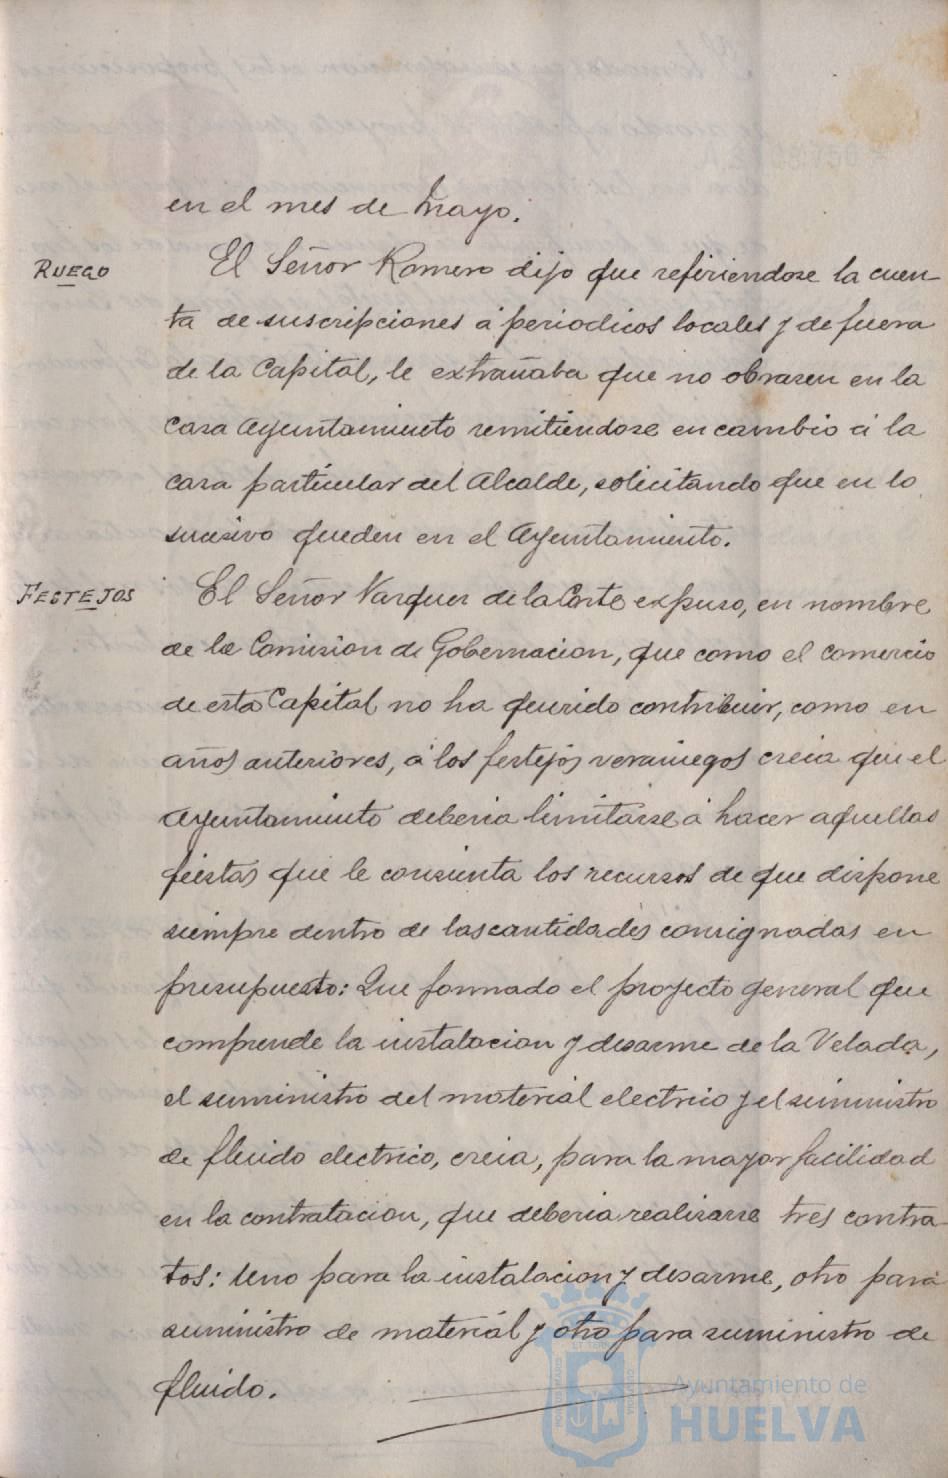 en el mes de Mayo.
RUEGO
El Señor Romero dijo que refiriendose la cuen-
ta de suscripciones á periodicos locales y de fuera
de la Capital, le extrañaba que no obrasen en la
Casa Ayuntamiento remitiendose en cambio á la
casa particular del Alcalde, solicitando que en lo
sucesivo queden en el Ayuntamiento.
FESTEJOS
El Señor Vazquez de la Corte expuso, en nombre
de la Comision de Gobernacion, que como el comercio
de esta Capital no ha querido contribuir, como en
años anteriores, á los festejos veraniegos creia que el
Ayuntamiento deberia limitarse á hacer aquellas
fiestas que le consienta los recursos de que dispone
siempre dentro de las cantidades consignadas en
presupuesto: Que formado el proyecto general que
comprende la instalacion y desarme de la Velada,
el suministro del material electrico y el suministro
de fluido electrico, creia, para la mayor facilidad
en la contratacion, que deberia realizarse tres contra-
tos: Uno para la instalacion y desarme, otro para
suministro de material y otro para suministro de
fluido.
Ayuntamiento de
HUELVA